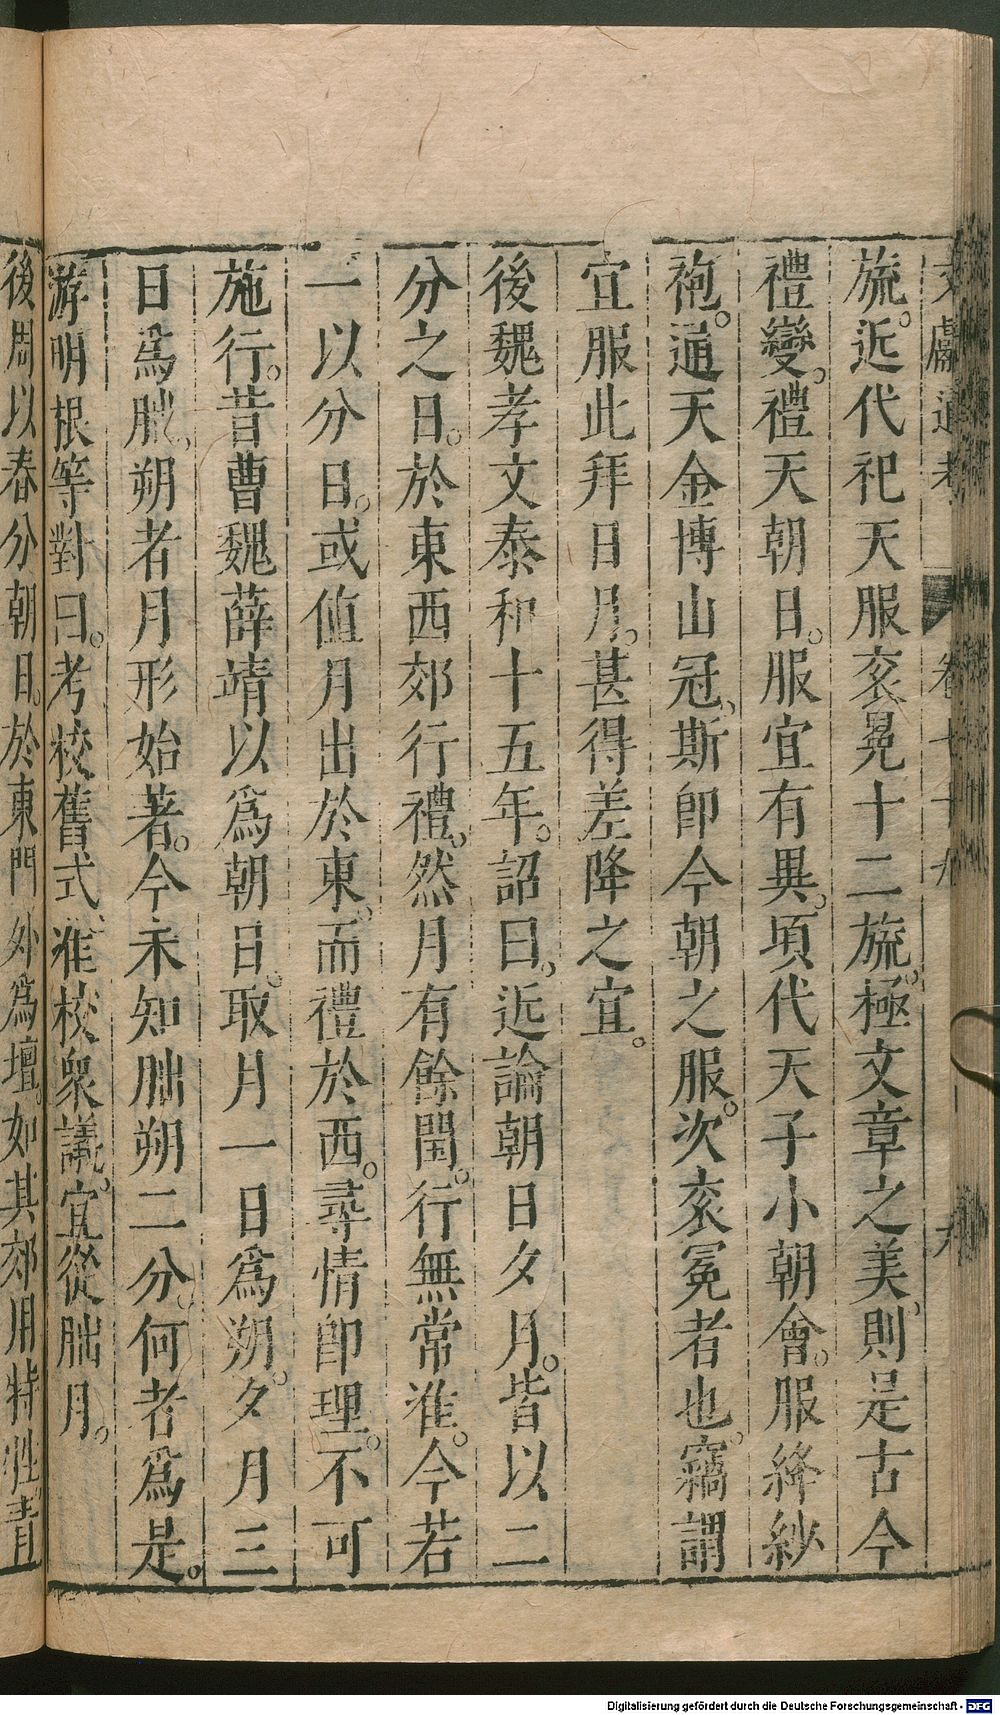 文獻通考 卷七十九 九
旒。近代祀天服衮冕十二旒。極文章之美。則是古今
禮變。禮天朝日。服宜有異。頃代天子小朝會。服絳紗
袍。通天金博山冠、斯卽今朝之服。次衮冕者也。竊謂
宜服此拜日月。甚得差降之宜。
後魏孝文泰和十五年。詔曰。近論朝日夕月。皆以二
分之日。於東西郊行禮。然月有餘閏。行無常准。今若
一以分日。或値月出於東。而禮於西。尋情卽理。不可
施行。昔曹魏薛靖以爲朝日。取月一日爲朔。夕月三
日爲朏、朔者月形始著。今未知朏朔二分。何者爲是。
游明根等對曰。考校舊式、准校衆議。宜從朏月。
後周以春分朝日。於東門外爲壇。如其郊用特牲青
Digitalisierung gefördert durch die Deutsche Forschungsgemeinschaft - DFG